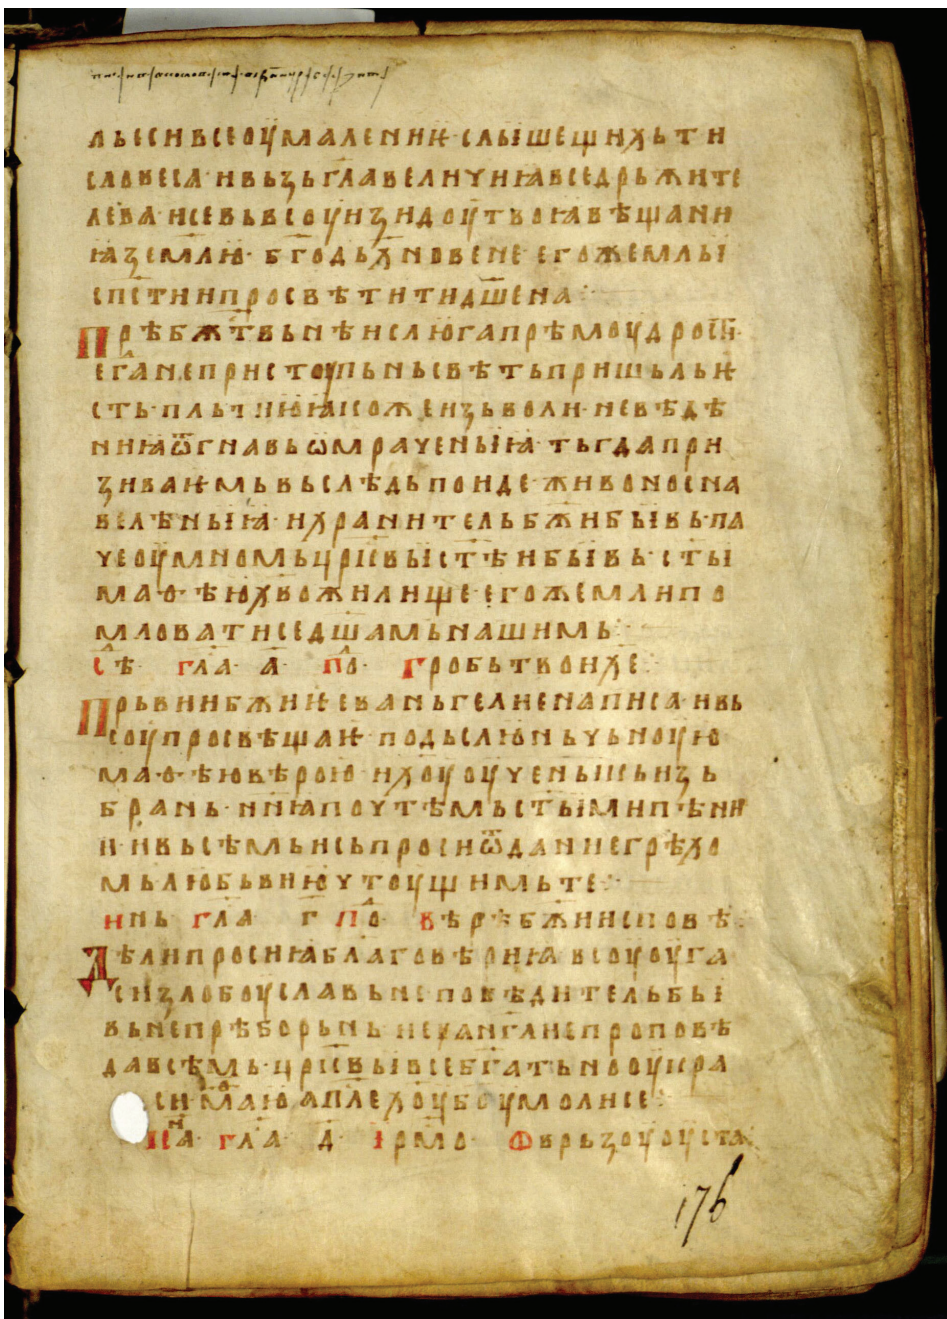 льеси всеоумалениѥ· слышещихь ти
словеса· и вьзьглавелиꙋи ꙗ вседрьжите
лева· и себь всоу изидоу твоꙗ вѣщани
ꙗ землю· бг҃одьх҃новене егоже млы
еп҃сти ипросвѣтити дш҃е на:
Прѣбж҃твьнѣи слюга прѣмоудрости·
ега непристоупьны свѣть пришьльѥ
сть· пльтиюѭкоже изьволи· невѣдѣ
ниꙗ ѿгнавь ѡмраченыꙗ· тьгда при
зиваѥмь вьслѣдь поиде живоносна
велѣныꙗ· и хранитель бж҃и бывь· па
че оумномь цр҃кви стѣи бывь· сты
маѳѣю х҃во жилище· егоже мли по
мловати се дш҃амь нашимь:
с҃ѣ гл҃а а҃ по҃ гробь твои хе
Прьви бж҃иѥ еваньгелие написа· ивь
соу просвѣщаѥ подьслюньчьноую
маѳѣю вѣрою· и х҃оу оученьшь изь
брань· ниꙗ поутѣмь стымипѣни
и· и вьсѣмь нсь проси ѿдание грѣхо
мь любьвию чтоущимь те:
инь гл҃а г҃ по҃ вѣрѣ бж҃ии испов҃ѣ
Дѣли проси ꙗ благовѣрниꙗ всоу оуга
си злобоу славьне поведитель бы
вь непрѣборьнь· не хан҃гл҃не проповѣ
да всѣмь· цр҃квы все бг҃атьно оукра
си· маѳю апл҃е х҃оу боу молисе:
на· гл҃а д҃ ірмо· Ѡврьзоу оуста·
176